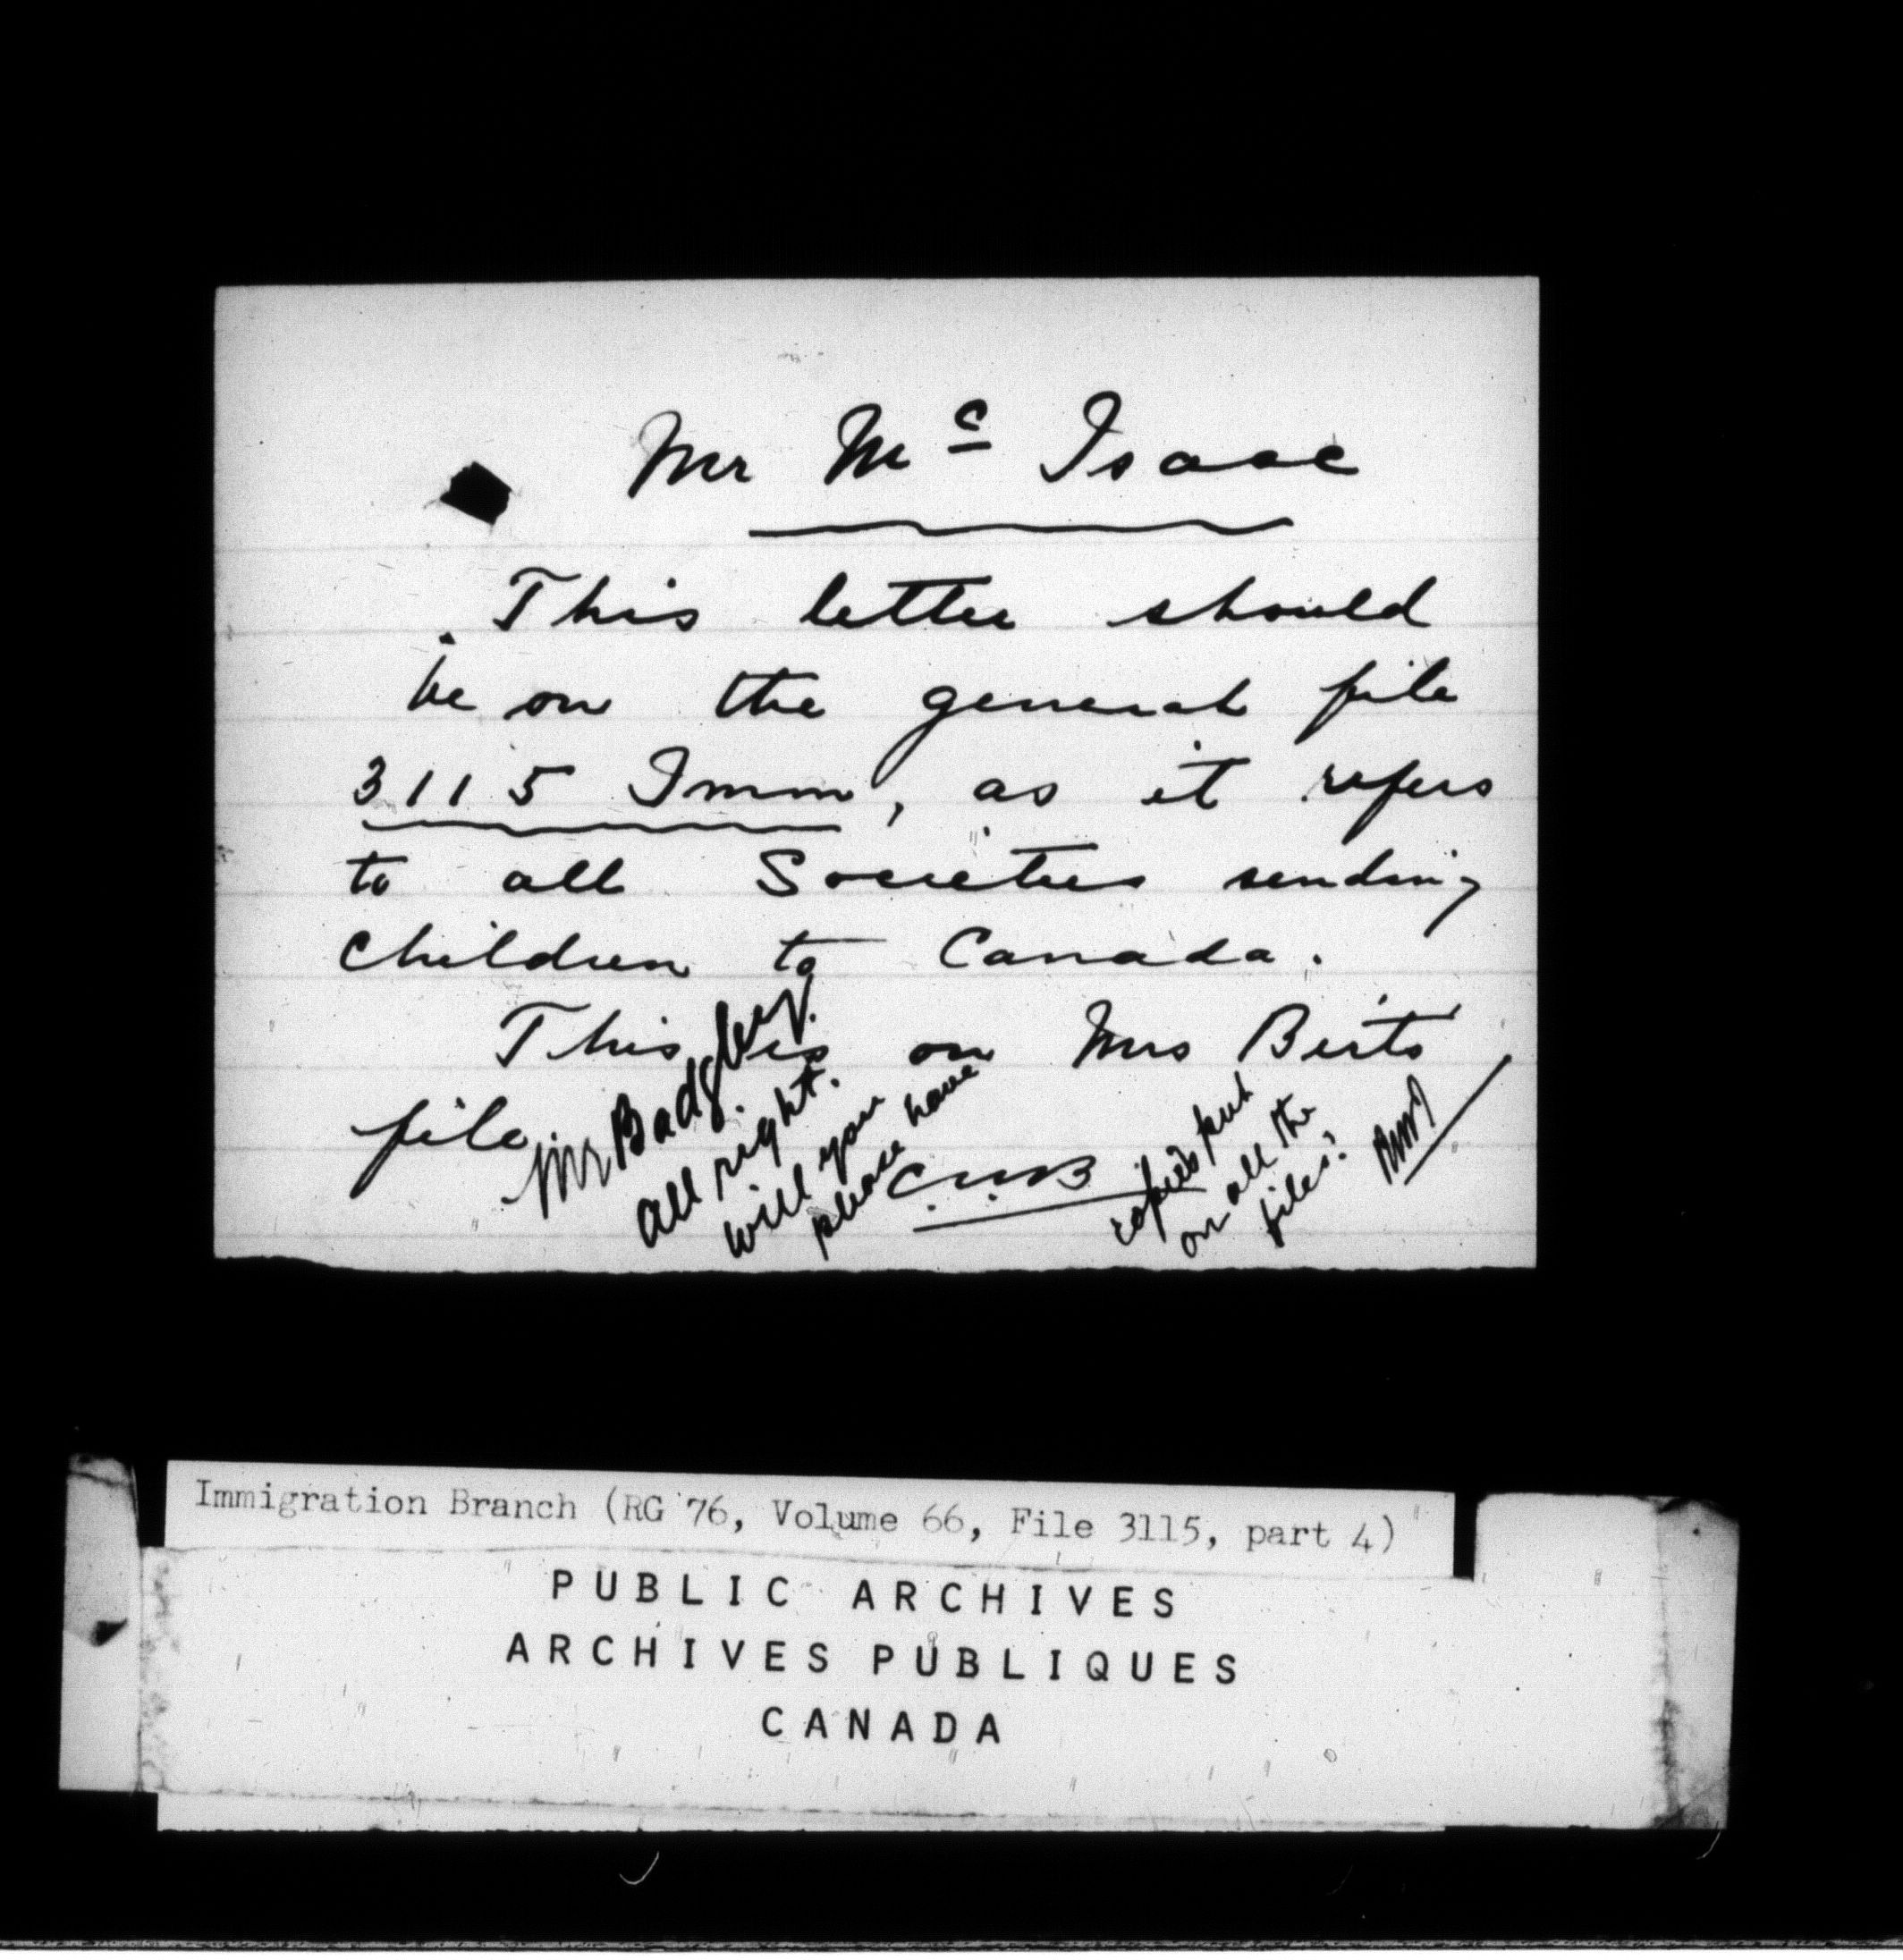 Mr Mc Isaac
This letter should
be on the general file
3115 Imm, as it refers
to all Societies sending
Children to Canada.
This is on Mrs Birts
file
C.W.B
Mr Badgley.
All right.
Will you
please have
copies put
on all the
files?
Immigration Branch (RG 76, Volume 66, File 3115, part 4)
PUBLIC ARCHIVES
ARCHIVES PUBLIQUES
CANADA